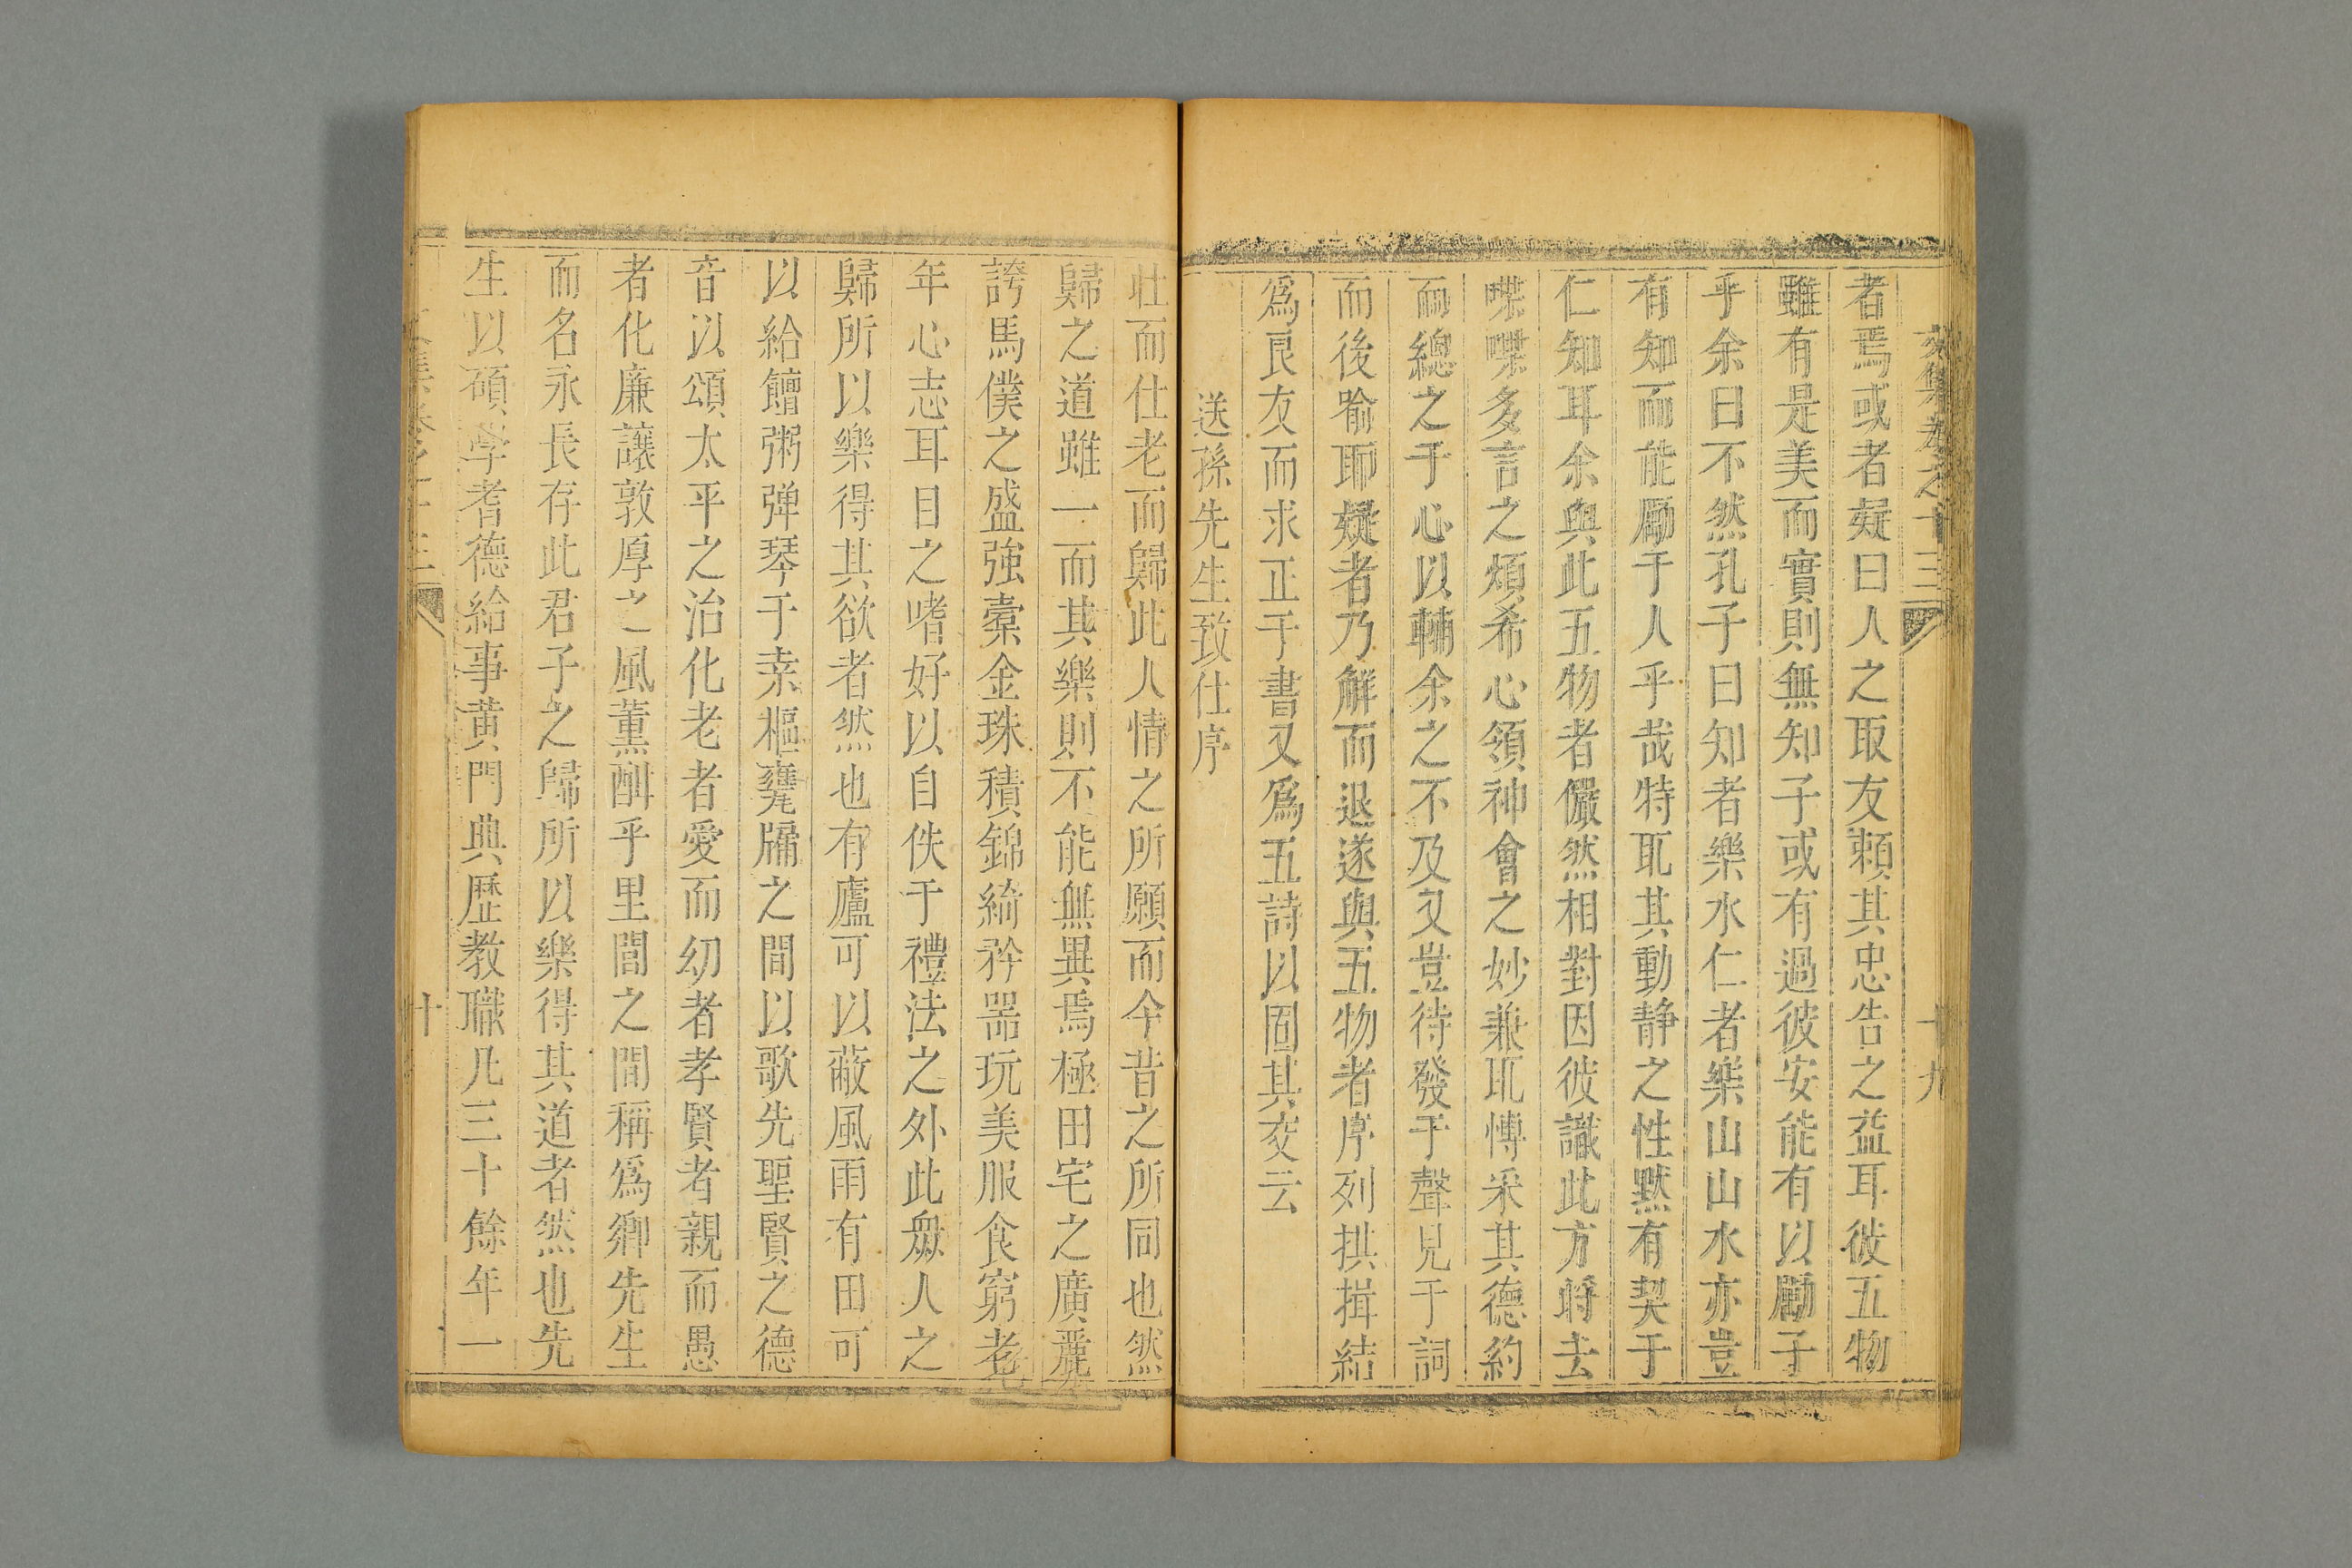 文集卷之十三 十九
者焉或者疑曰人之取友頼其忠告之益耳彼五物
雖有是美而實則無知子或有過彼安能有以勵子
乎余曰不然孔子曰知者樂水仁者樂山山水亦豈
有知而能勵于人乎哉特取其動静之性黙有契于
仁知耳余與此五物者儼然相對因彼識此方將去
喋喋多言之煩希心領神會之妙兼取慱采其德約
而總之于心以輔余之不及又豈待發于聲見于詞
而後喻耶疑者乃觧而退遂與五物者序列拱揖結
爲良友而求正于書又爲五詩以固其交云
送孫先生致仕序
壮而仕老而歸此人情之所願而今昔之所同也然
歸之道雖一而其樂則不能無異焉極田宅之廣麗
誇馬僕之盛強橐金珠積錦綺矜器玩美服食窮老
年心志耳目之嗜好以自佚于禮法之外此衆人之
歸所以樂得其欲者然也有廬可以蔽風雨有田可
以給饘粥弹琴于桒樞甕牖之間以歌先聖賢之德
音以頌太平之治化老者愛而㓜者孝賢者親而愚
者化廉讓敦厚之風薫酣乎里閭之間稱爲鄉先生
而名永長存此君子之歸所以樂得其道者然也先
生以碩学耆德給事黄門典歴教職凡三十餘年一
文集卷之十三 十